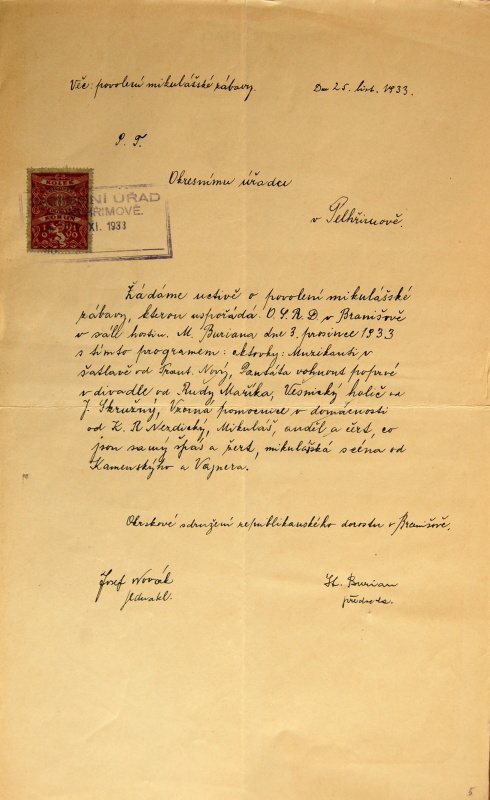 Věc: povolení mikulášské zábavy. Dne 25. list. 1933.
P. T.
Okresnímu úřadce
v Pelhřimově.
KOLEK
NÍ ÚŘAD
HŘIMOVĚ.
XI. 1933
KORUN
Žádáme uctivě o povolení mikulášské
zábavy, kterou uspořádá O.S.R.D. v Branišově
v sále hostin. M. Buriana dne 3. prosince 1933
s tímto programem: aktovky: Muzikanti v
šatlavě od Frant. Nový, Pantáta vohnout poprvé
v divadle od Rudy Mařika, Vesnický holič od
J. Skružný, Vzorná pomocnice v domácnosti
od K. R. Nezdický, Mikuláš, anděl a čert, co
jsou samý špás a žert, mikulášská scéna od
Kamenskýho a Vajnera.
Obrskové sdružení republikanského dorostu v Branišově.
Josef Novák St. Burian
jednatel. předseda.
5